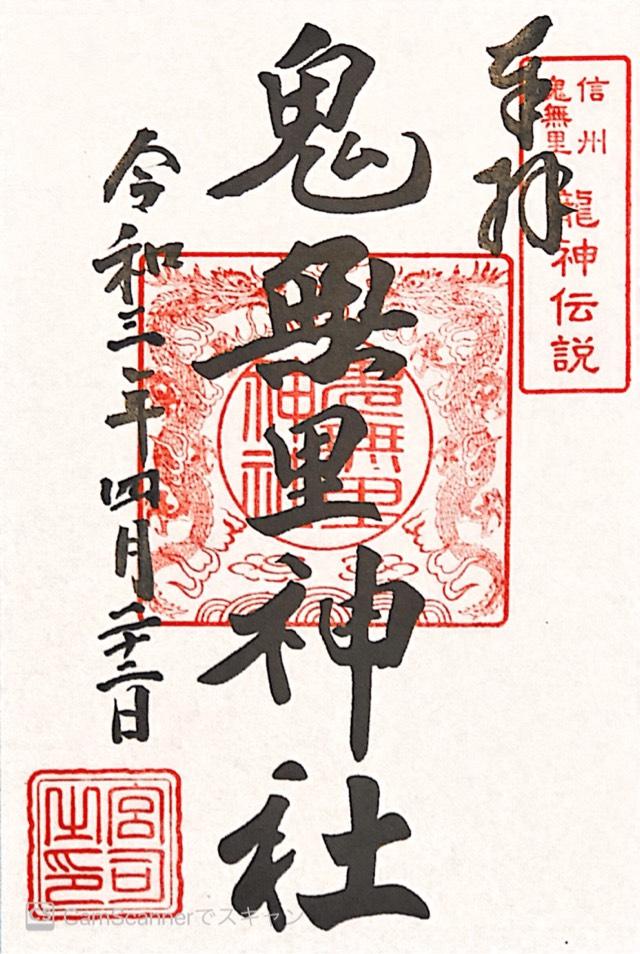 奉拝
信州
鬼無里
龍神伝説
鬼無里神社
鬼無里
神社
令和三年四月二十二日
宮司
之印
CS CamScannerでスキャン